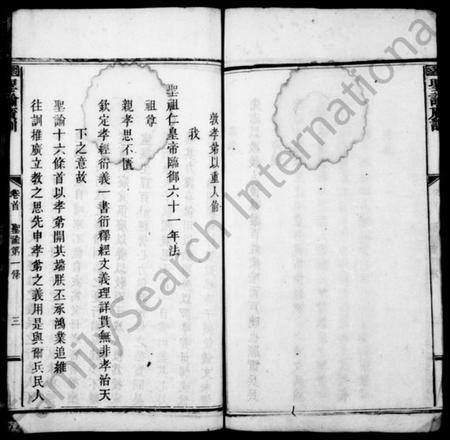 敦孝弟以重人倫
我
聖祖仁皇帝臨御六十一年法
祖尊
親孝思不匱
欽定孝經衍義一書衍釋經文義理詳貫無非孝治天
下之意故
聖諭十六條首以孝弟開其端朕丕承鴻業追維
往訓推廣立教之思先申孝弟之義用是與爾兵民人
聖諭廣訓
卷首 聖諭第一條 三
FamilySearch International